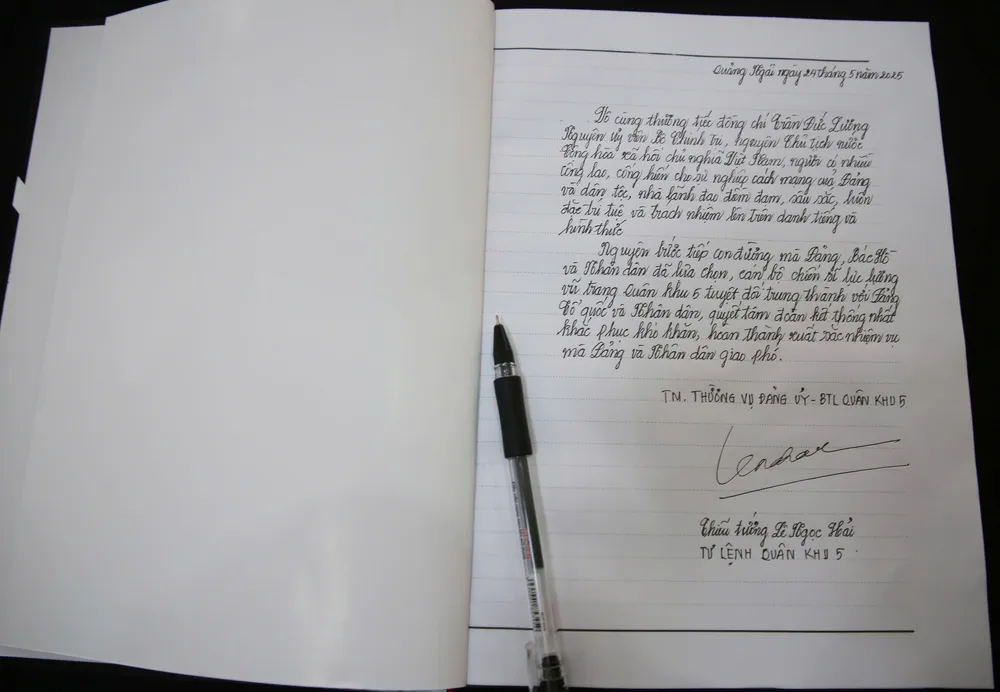 Quảng Ngãi ngày 24 tháng 5 năm 2025
Vô cùng thương tiếc đồng chí Trần Đức Lương
Nguyên uỷ viên Bộ Chính trị, nguyên Chủ tịch nước
Cộng hòa xã hội chủ nghĩa Việt Nam, người có nhiều
công lao, cống hiến cho sự nghiệp cách mạng của Đảng
và dân tộc, nhà lãnh đạo điềm đạm, sâu sắc, luôn
đặt trí tuệ và trách nhiệm lên trên danh tiếng và
hình thức
Nguyện bước tiếp con đường mà Đảng, Bác Hồ
và Nhân dân đã lựa chọn, cán bộ chiến sĩ lực lượng
vũ trang Quân khu 5 tuyệt đối trung thành với Đảng
Tổ quốc và Nhân dân, quyết tâm đoàn kết thống nhất
khắc phục khó khăn, hoàn thành xuất sắc nhiệm vụ
mà Đảng và Nhân dân giao phó.
TM. THƯỜNG VỤ ĐẢNG ỦY - BTL QUÂN KHU 5
Thiếu tướng Lê Ngọc Hải
TƯ LỆNH QUÂN KHU 5